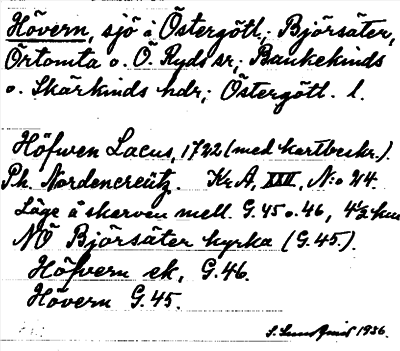 Hövern, sjö i Östergötl.; Björsäter,
Örtomta o. Ö. Ryds sr, Bankekinds
o. Skärkinds hdr; Östergötl. l.
Höfwen Lacus, 1722 (med kartbeskr.).
Ph. Nordencreütz. Kr.A, XXX, N:o 24.
Läge å skärven mell. G. 45 o. 46, 4½ km
NÖ Björsäter kyrka (G. 45).
Höfvern ek, G. 46.
Hövern G. 45.
1936.